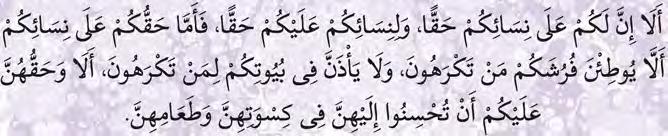 أَلَا إِنَّ لَكُمْ عَلَى نِسَائِكُمْ حَقًّا، وَلِنِسَائِكُمْ عَلَيْكُمْ حَقًّا، فَأَمَّا حَقُّكُمْ عَلَى نِسَائِكُمْ
أَلَّا يُوطِئْنَ فُرُشَكُمْ مَنْ تَكْرَهُونَ، وَلَا يَأْذَنَّ فِى بُيُوتِكُمْ لِمَنْ تَكْرَهُونَ، أَلَا وَحَقُّهُنَّ
عَلَيْكُمْ أَنْ تُحْسِنُوا إِلَيْهِنَّ فِى كِسْوَتِهِنَّ وَطَعَامِهِنَّ.